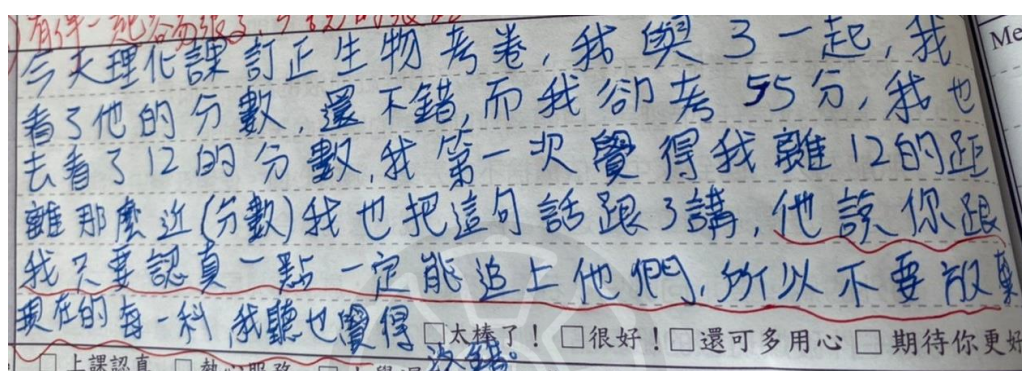 有伴一起
今天理化課訂正生物考卷,我與3一起,我
看了他的分數,還不錯,而我卻考55分,我也
去看了12的分數,我第一次覺得我離12的距
離那麼近(分數)我也把這句話跟3講,他說你跟
我只要認真一點一定能追上他們,所以不要放棄
現在的每一科 我聽也覺得 □太棒了! □很好! □還可多用心 □期待你更好
沒錯。
□上課認真 □熱心服務
Me